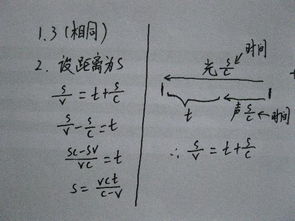 1.3(相同)
2. 设距离为S
s/v = t + s/c
s/v - s/c = t
(sc-sv)/(vc) = t
s = vct/(c-v)
时间
光 s/c
t
声 s/c 时间
∴ s/v = t + s/c